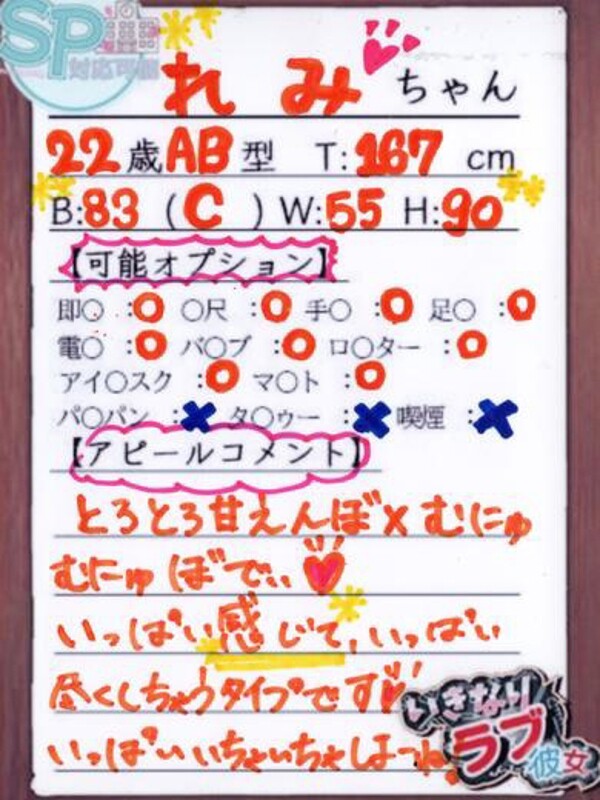 SP
対応可能
れみちゃん
22歳AB型 T:167cm
B:83(C)W:55 H:90
【可能オプション】
即〇:○ 〇尺:○ 手〇:○ 足〇:○
電〇:○ バ〇ブ:○ ロ〇ター:○
アイ〇スク:○ マ〇ト:○
パ〇パン:× タ〇ゥー:× 喫煙:×
【アピールコメント】
とろとろ甘えんぼ×むにゅ
むにゅぼでぃ♥
いっぱい感じて、いっぱい
尽くしちゃうタイプです♥
いっぱいいちゃいちゃしよーね
いきなり
ラブ
彼女